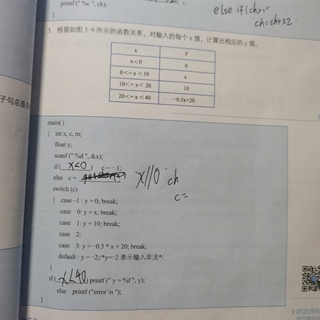 printf (" %c ", ch);
}
else if(ch>=
ch=ch+32
3. 根据如图 3-9 所示的函数关系，对输入的每个 x 值，计算出相应的 y 值。
x y
x<0 0
0<= x < 10 x
10=< x < 20 10
20=< x < 40 -0.5x+20
main( )
{ int x, c, m;
float y;
scanf (" %d ", &x);
if ( x<0 ) c = - 1;
else c = x//0 ch
switch (c) c=
{ case -1 : y = 0; break;
case 0: y = x; break;
case 1: y = 10; break;
case 2:
case 3: y = -0.5 * x + 20; break;
default : y = -2;/*y=-2 表示输入非法*/
}
if ( x<40 ) printf (" y = %f ", y);
else printf ("error \n ");
}